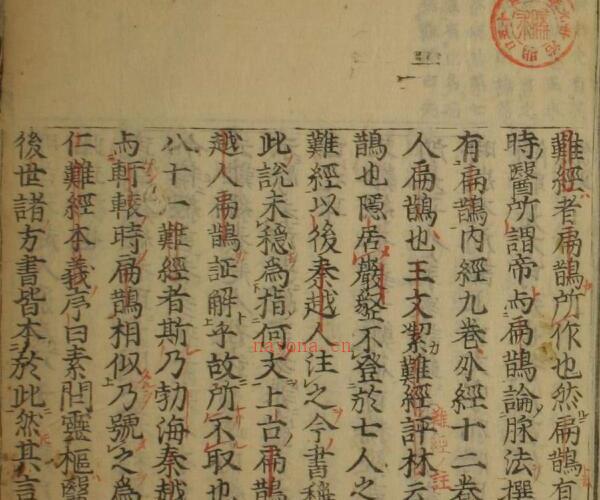 難經者扁鵲所作也然扁鵲有
時醫所謂帝与扁鵲論脉法撰
有扁鵲内經九卷外經十二卷
人扁鵲也王文絜難經評林云
鵲也隱居巖壑不登於七人之
難經以後秦越人注之今書稱
此說未穩爲指何天上古扁鵲
越人扁鵲証解乎故所不取也
八十一難經者斯乃勃海秦越
与軒轅時扁鵲相似乃號之爲
仁難經本義序曰素問靈樞醫
後世諸方書皆本於此然其言
難經註
nayona.cn